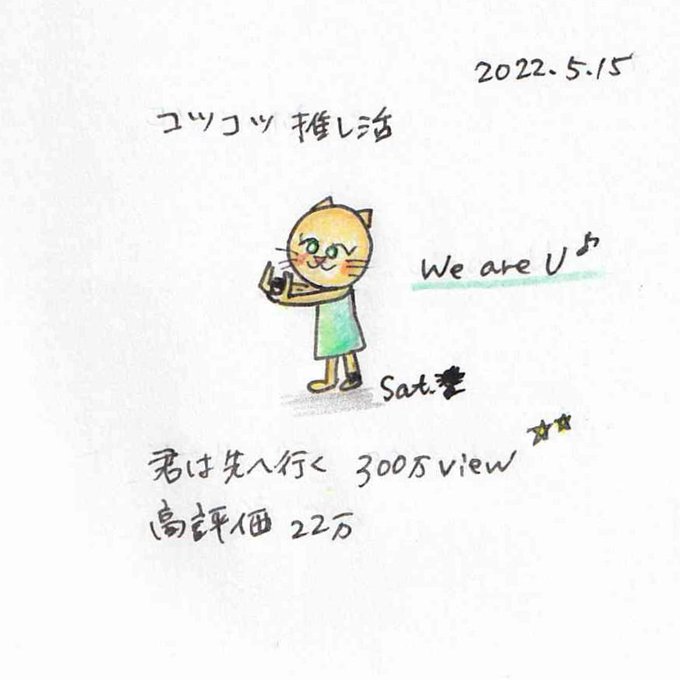 2022.5.15
コツコツ 推し活
We are U♪
Sat.
君は先へ行く 300万view ☆☆
高評価 22万